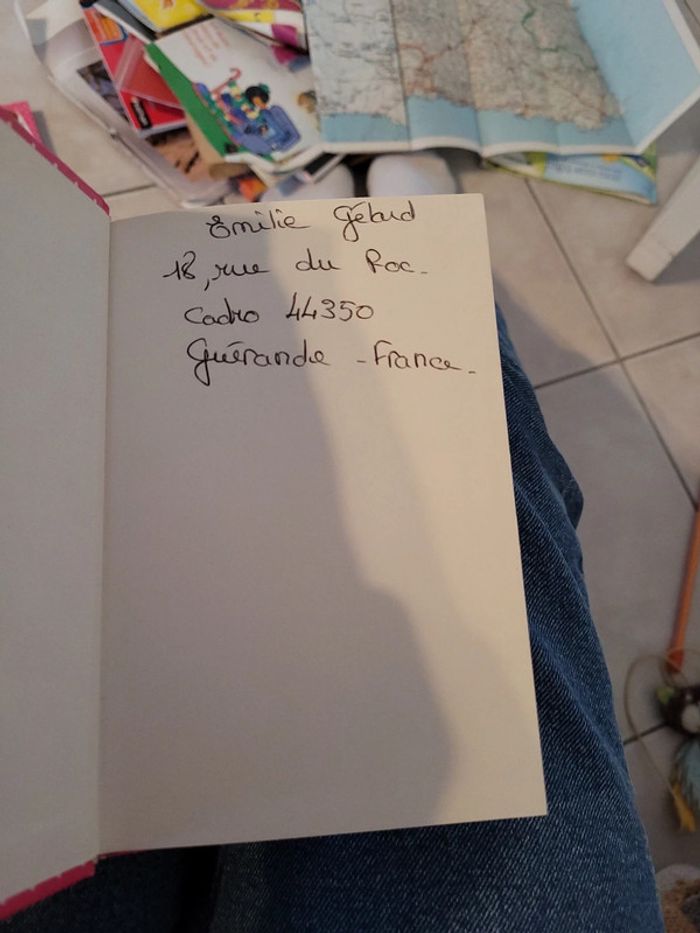 Emilie Gélard
18, rue du Roc.
Cadro 44350
Guérande - France.